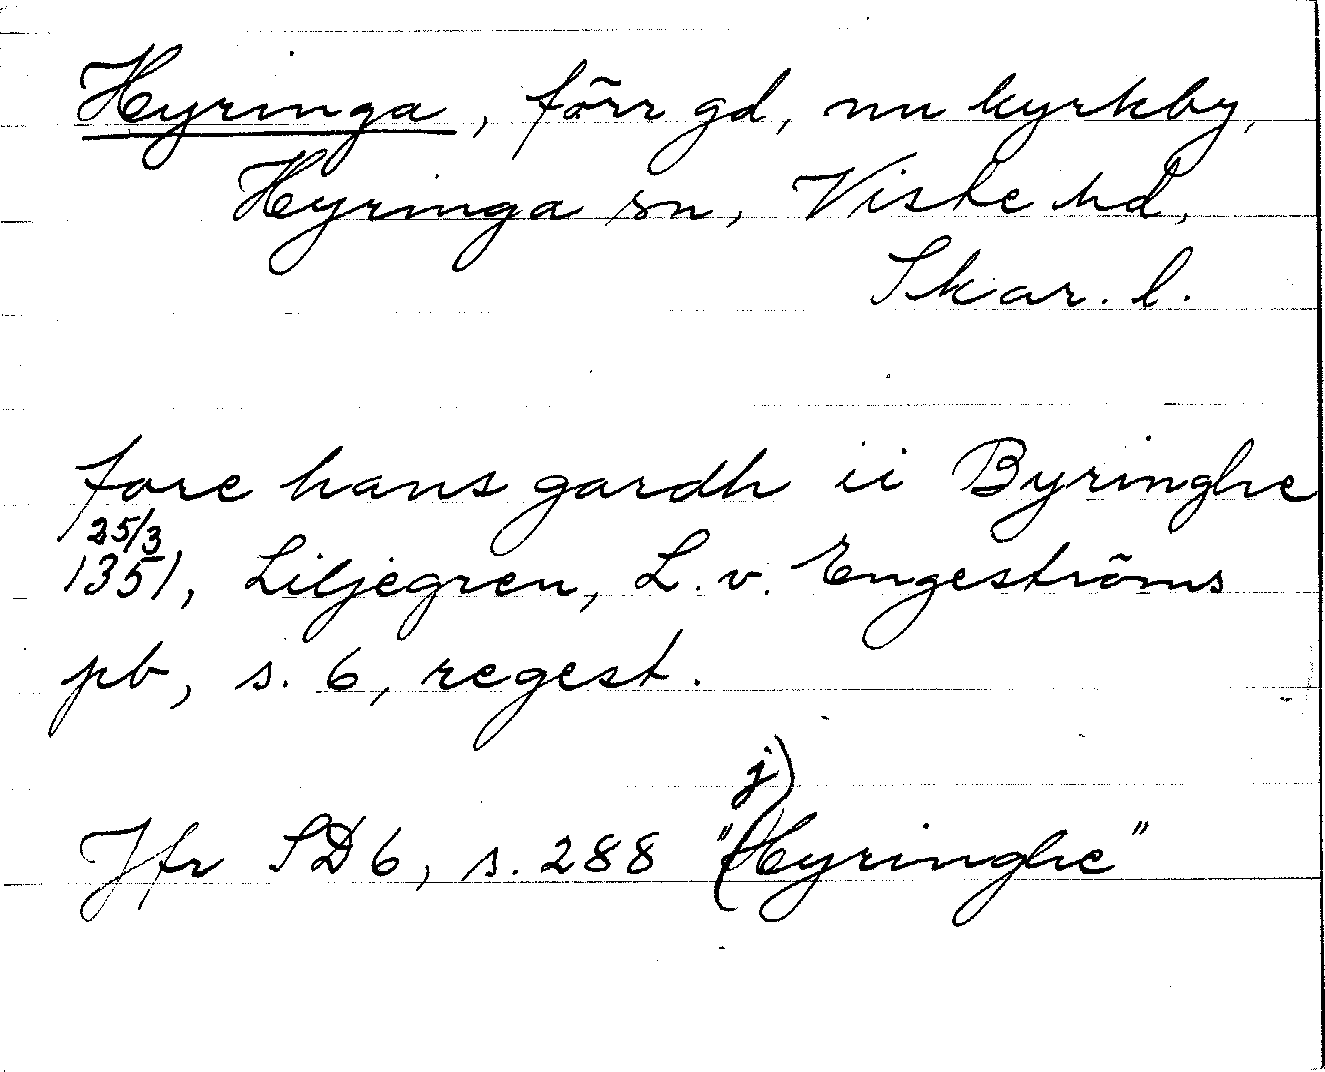 Hyringa, förr gd, nu kyrkby,
Hyringa sn, Viste hd,
Skar. l.
fore hans gardh ii Byringhe
25/3
1351, Liljegren, L. v. Engeströms
pb, s. 6, regest.
Jfr SD 6, s. 288 "(j) Hyringhe"